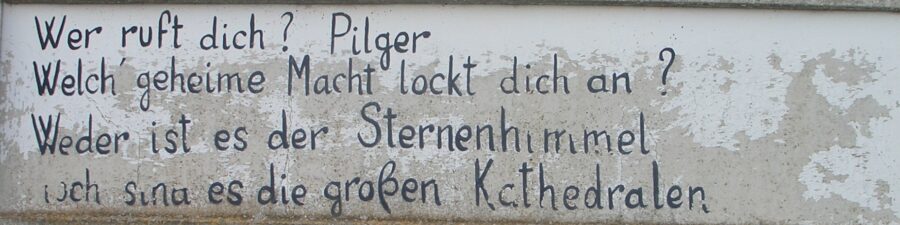 Wer ruft dich? Pilger
Welch' geheime Macht lockt dich an?
Weder ist es der Sternenhimmel
noch sind es die großen Kathedralen